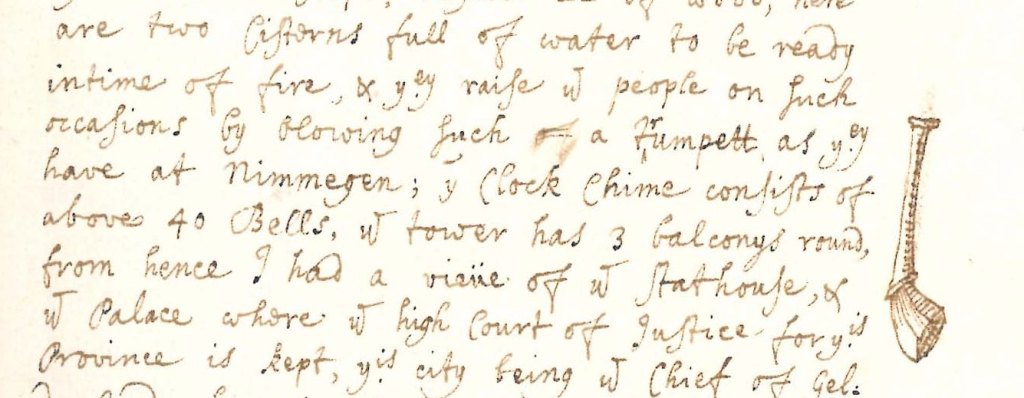 of wood, here
are two Cisterns full of water to be ready
in time of fire, & yᵉʸ raise yᵉ people on such
occasions by blowing such a Trumpett as yᵉʸ
have at Nimmegen; yᵉ Clock Chime consists of
above 40 Bells, yᵉ tower has 3 balconys round,
from hence I had a vieüe of yᵉ Stathouse, &
yᵉ Palace where yᵉ high Court of Justice for yⁱˢ
Province is kept, yⁱˢ city being yᵉ Chief of Gel: